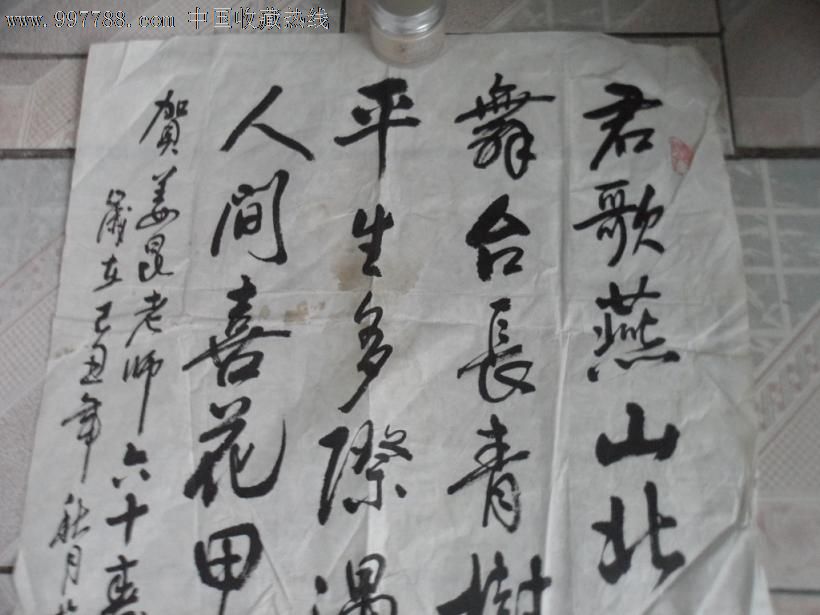 www.997788.com 中国收藏热线
君歌燕山北
舞台長青樹
平生多際遇
人间喜花甲
賀姜昆老师六十寿
歲在己丑年秋月